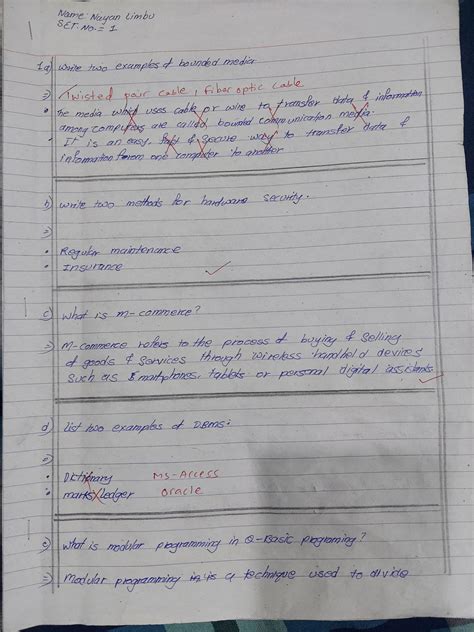 Name: Nayan Limbu
SET. No. = 1
1.a) write two examples of bounded media
=) Twisted pair cable, Fiber optic cable
• The media which uses cable or wire to transfer data & information
among computers are called bounded communication media.
• IT is an easy, fast & secure way to transfer data &
information from one computer to another
b) write two methods for hardware security.
=)
• Regular maintenance
• Insurance
c) what is m-commerce?
=) M-commerce refers to the process of buying & selling
of goods & services through wireless handheld devices
such as smartphones, tablets or personal digital assistants
d) list two examples of DBMS.
=)
• Dictionary Ms-Access
• marks Ledger Oracle
e) what is modular programming in Q-Basic programing?
=) Modular programming is a technique used to divide